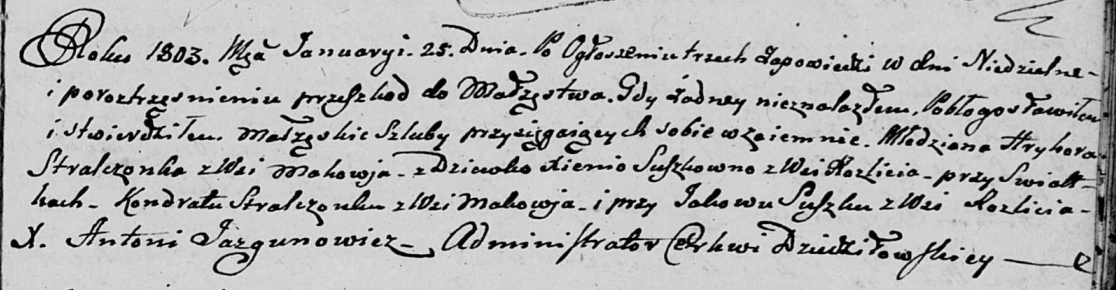 Roku 1803. Mca Januaryi. 25. Dnia. Po Ogłoszeniu trzech Zapowiedzi w dni Niedzielne-
i poroztrzęsnieniu przeszkod do Małzęstwa. Gdy żadney nieznalazłem. Pobłogosławiłem
i stwierdziłem. Małzęskie Szluby przysięgaiących sobie wzaiemnie. Młodziana Hryhora
Stralczonka z Wsi Makowja - z Dziewko Xienio Suszkowno z Wsi Rozlicia - przy Swiad-
kach - Kondratu Stralczonku z Wsi Makowja - i przy Jakowu Suszku z Wsi Rozlicia -
X. Antoni Jazgunowicz - Administrator Cerkwi Dziedziłowskiey